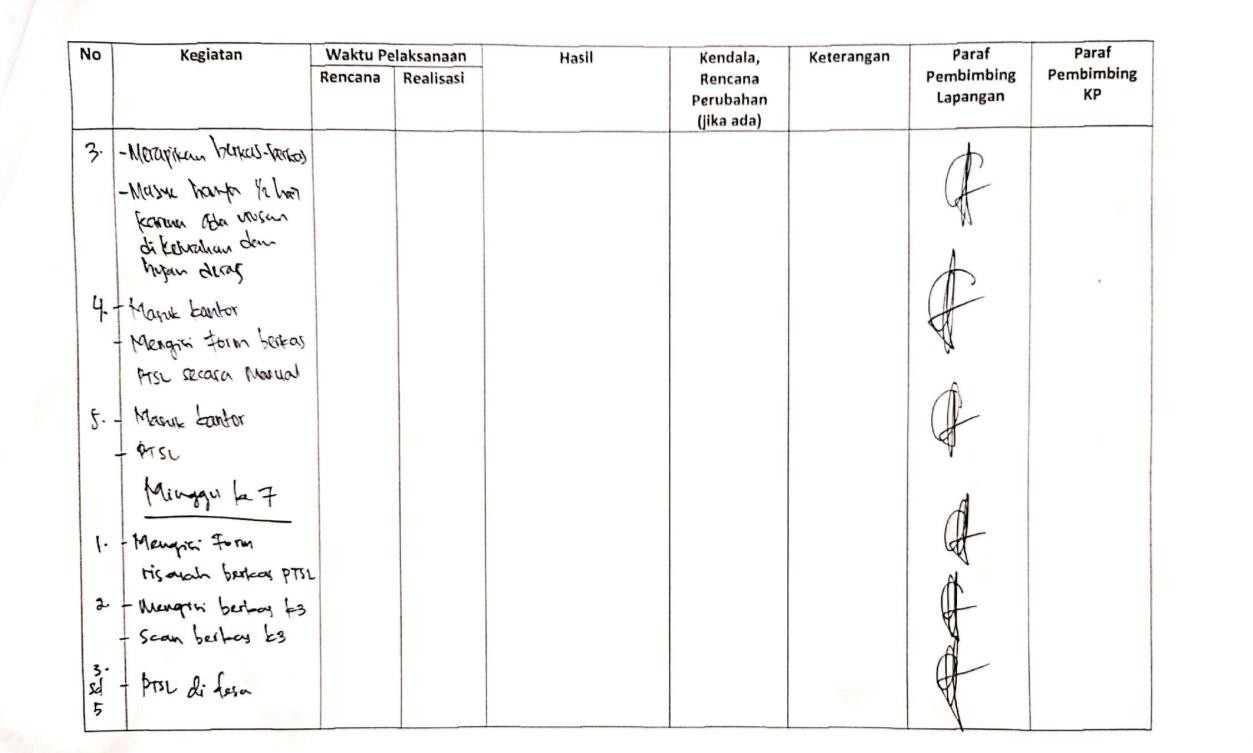 No Kegiatan Waktu Pelaksanaan Hasil Kendala, Rencana Perubahan (jika ada) Keterangan Paraf Pembimbing Lapangan Paraf Pembimbing KP
Rencana Realisasi
3. - Merapikan berkas-berkas
- Masuk hanya 1/2 hari
karena ada urusan
di kelurahan dan
hujan deras
4. - Masuk kantor
- Mengisi Form berkas
PTSL secara Manual
5. - Masuk kantor
- PTSL
Minggu ke 7
1. - Mengisi Form
risalah berkas PTSL
2. - Mengisi berkas k3
- Scan berkas k3
3. sd 5 - PTSL di desa